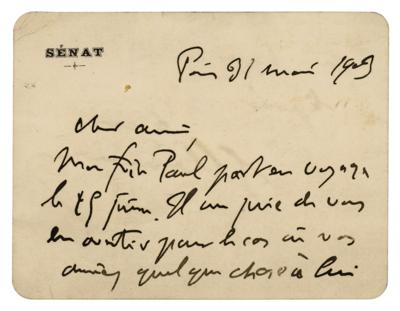 SÉNAT
Paris 31 mai 1903
cher ami,
Mon frère Paul part en voyage
le 15 juin. Il me prie de vous
en avertir pour le cas où vous
auriez quelque chose à lui